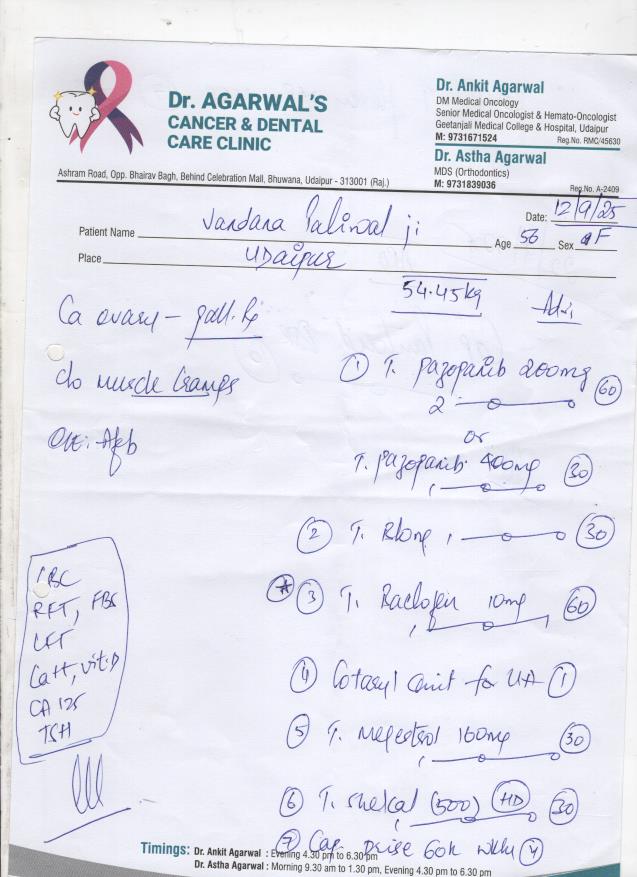 Dr. AGARWAL'S
CANCER & DENTAL
CARE CLINIC
Ashram Road, Opp. Bhairav Bagh, Behind Celebration Mall, Bhuwana, Udaipur - 313001 (Raj.)
Dr. Ankit Agarwal
DM Medical Oncology
Senior Medical Oncologist & Hemato-Oncologist
Geetanjali Medical College & Hospital, Udaipur
M: 9731671524 Reg.No. RMC/45630
Dr. Astha Agarwal
MDS (Orthodontics)
M: 9731839036 Reg.No. A-2409
Date: 12/9/25
Patient Name Vandana Paliwal ji Age 56 Sex F
Place Udaipur
54.45kg
Adv:
Ca ovary - pall. Rx
c/o muscle cramps
O/E: Afeb
① T. pazopanib 200mg 60
2
or
T. pazopanib 400mg 30
1
② T. Blong 1 30
* ③ T. Baclofen 10mg 60
1 1
④ Cotaryl oint for UA ①
⑤ T. megestrol 160mg 30
1
⑥ T. shelcal (500) HD 30
1
⑦ Cap. 60k wkly ④
CBC
RFT, FBS
LFT
Ca++, vit.D
CA 125
TSH
Timings: Dr. Ankit Agarwal : Evening 4.30 pm to 6.30 pm
Dr. Astha Agarwal : Morning 9.30 am to 1.30 pm, Evening 4.30 pm to 6.30 pm